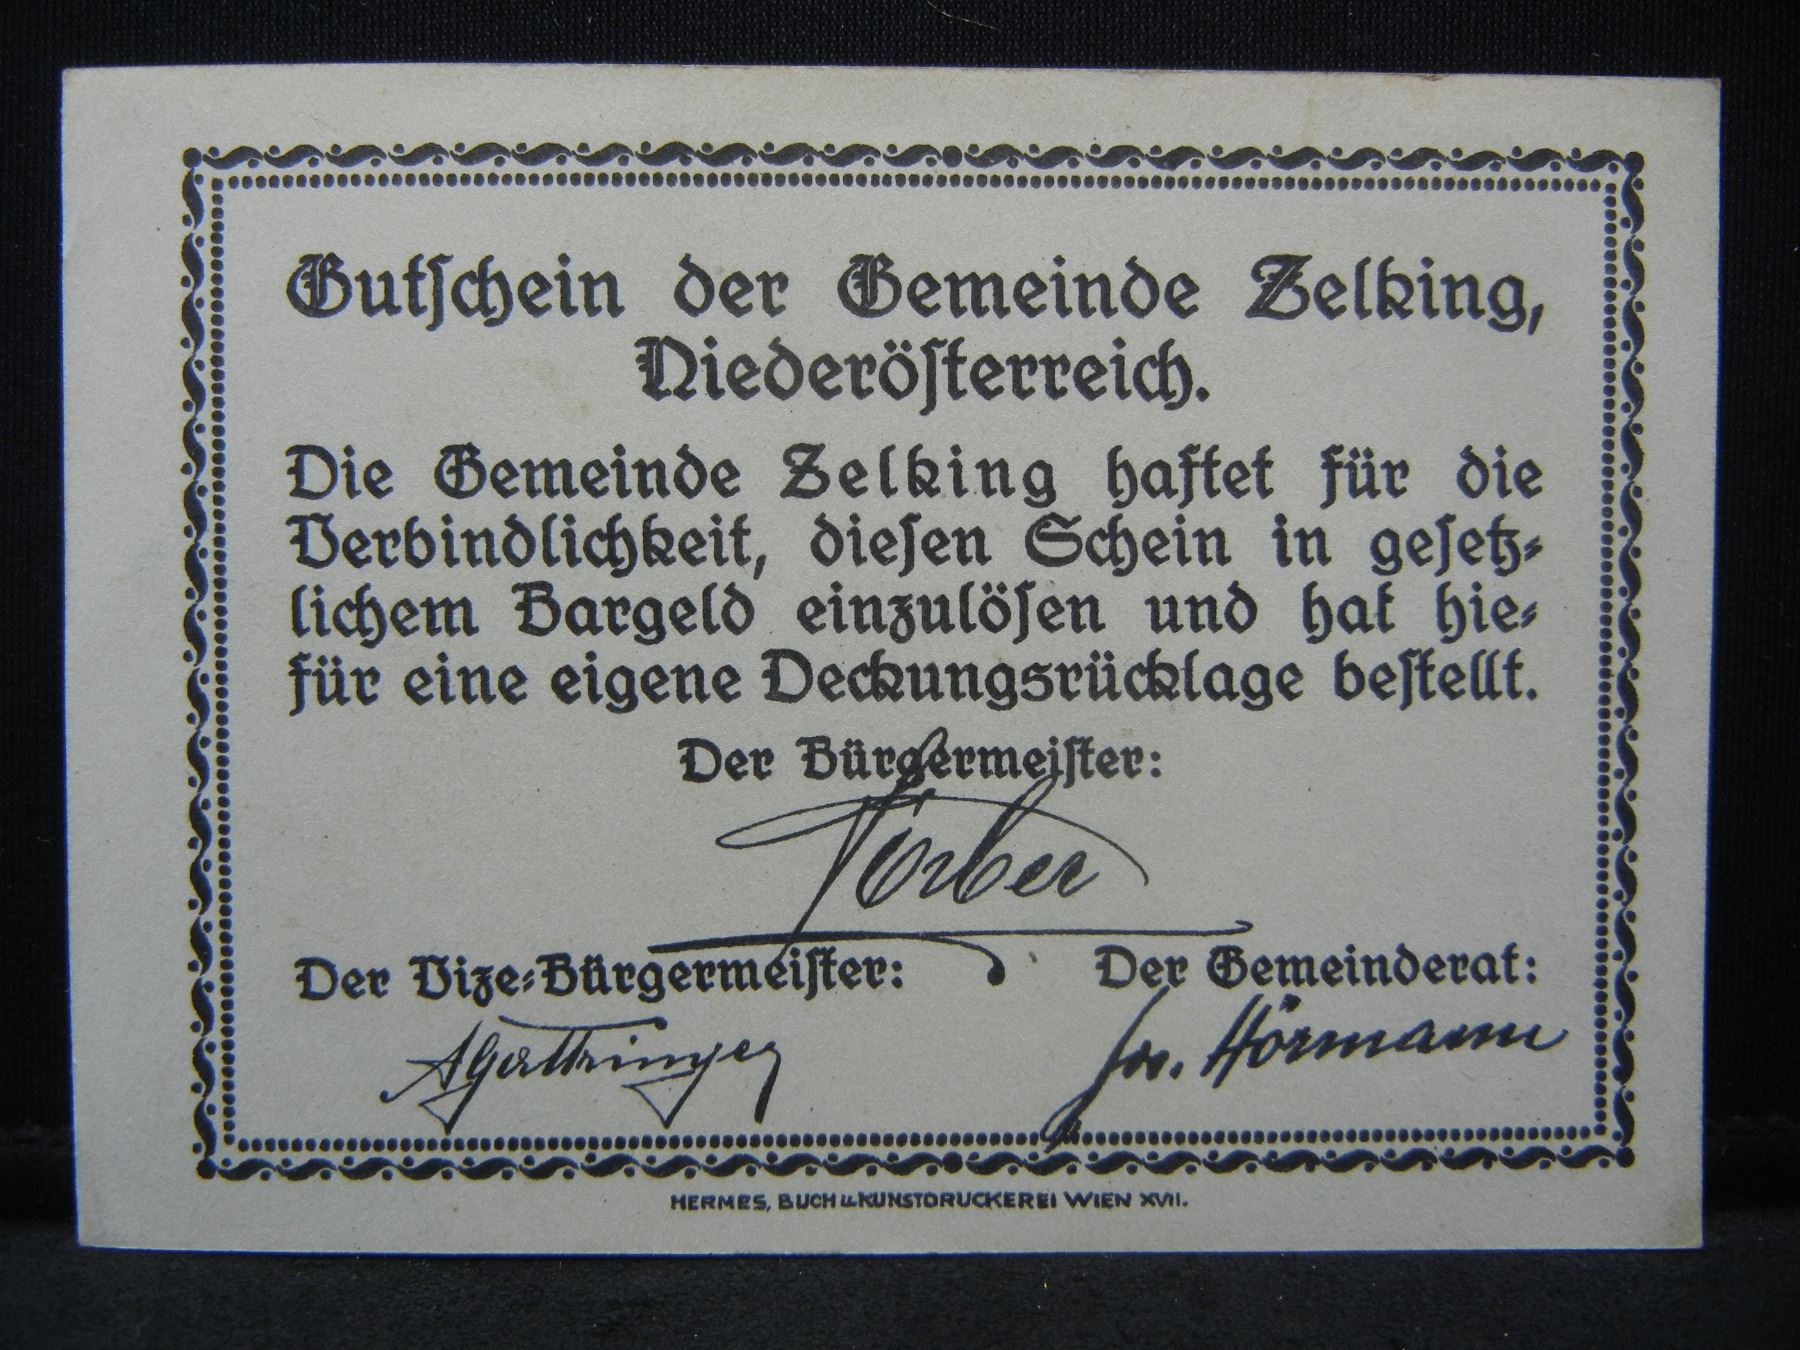 Gutschein der Gemeinde Zelking,
Niederösterreich.
Die Gemeinde Zelking haftet für die
Verbindlichkeit, diesen Schein in gesetz-
lichem Bargeld einzulösen und hat hie-
für eine eigene Deckungsrücklage bestellt.
Der Bürgermeister:
Der Vize-Bürgermeister: Der Gemeinderat:
Hörmann
HERMES, BUCH u. KUNSTDRUCKEREI WIEN XVII.